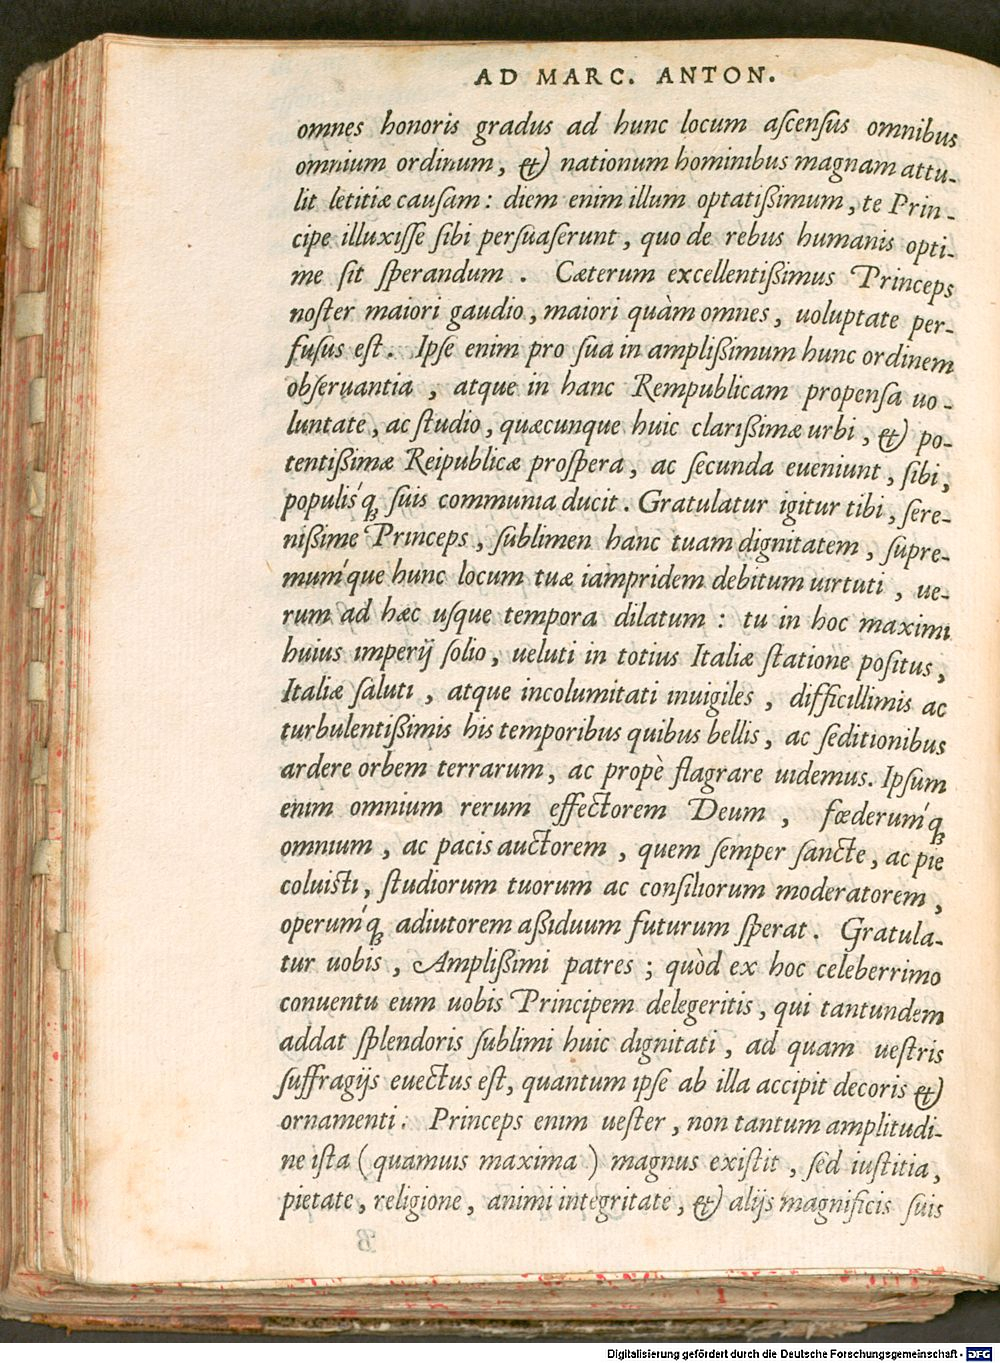 AD MARC. ANTON.
omnes honoris gradus ad hunc locum ascensus omnibus
omnium ordinum, & nationum hominibus magnam attu-
lit letitiæ causam: diem enim illum optatißimum, te Prin-
cipe illuxisse sibi persuaserunt, quo de rebus humanis opti-
me sit sperandum . Cæterum excellentißimus Princeps
noster maiori gaudio, maiori quàm omnes, uoluptate per-
fusus est. Ipse enim pro sua in amplißimum hunc ordinem
obseruantia , atque in hanc Rempublicam propensa uo-
luntate, ac studio, quæcunque huic clarißimæ urbi, & po-
tentißimæ Reipublicæ prospera, ac secunda eueniunt, sibi,
populis'q; suis communia ducit. Gratulatur igitur tibi, sere-
nißime Princeps, sublimen hanc tuam dignitatem, supre-
mum'que hunc locum tuæ iampridem debitum uirtuti , ue-
rum ad hæc usque tempora dilatum : tu in hoc maximi
huius imperij solio, ueluti in totius Italiæ statione positus,
Italiæ saluti , atque incolumitati inuigiles , difficillimis ac
turbulentißimis his temporibus quibus bellis, ac seditionibus
ardere orbem terrarum, ac propè flagrare uidemus. Ipsum
enim omnium rerum effectorem Deum , fœderum'q;
omnium , ac pacis auctorem , quem semper sancte, ac pie
coluisti, studiorum tuorum ac consiliorum moderatorem ,
operum'q; adiutorem aßiduum futurum sperat. Gratula-
tur uobis , Amplißimi patres ; quòd ex hoc celeberrimo
conuentu eum uobis Principem delegeritis, qui tantundem
addat splendoris sublimi huic dignitati , ad quam uestris
suffragijs euectus est, quantum ipse ab illa accipit decoris &
ornamenti. Princeps enim uester, non tantum amplitudi-
ne ista ( quamuis maxima ) magnus existit , sed iustitia,
pietate, religione, animi integritate, & alijs magnificis suis
Digitalisierung gefördert durch die Deutsche Forschungsgemeinschaft - DFG